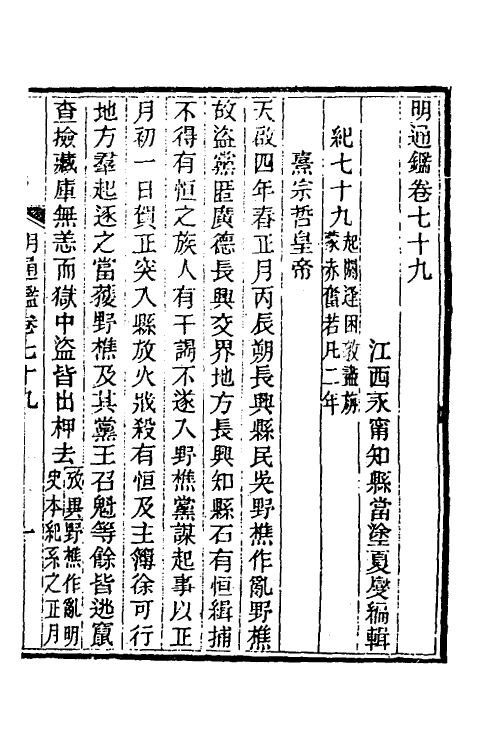 明通鑑卷七十九
江西永甯知縣當塗夏燮編輯
紀七十九起閼逢困敦盡旃蒙赤奮若凡二年
熹宗哲皇帝
天啟四年春正月丙辰朔長興縣民吳野樵作亂野樵
故盜黨匿廣德長興交界地方長興知縣石有恒緝捕
不得有恒之族人有干謁不遂入野樵黨謀起事以正
月初一日賀正突入縣放火戕殺有恒及主簿徐可行
地方羣起逐之當獲野樵及其黨王召魁等餘皆逃竄
查檢藏庫無恙而獄中盜皆出柙去攷異野樵作亂明史本紀系之正月
明通鑑卷七十九 一